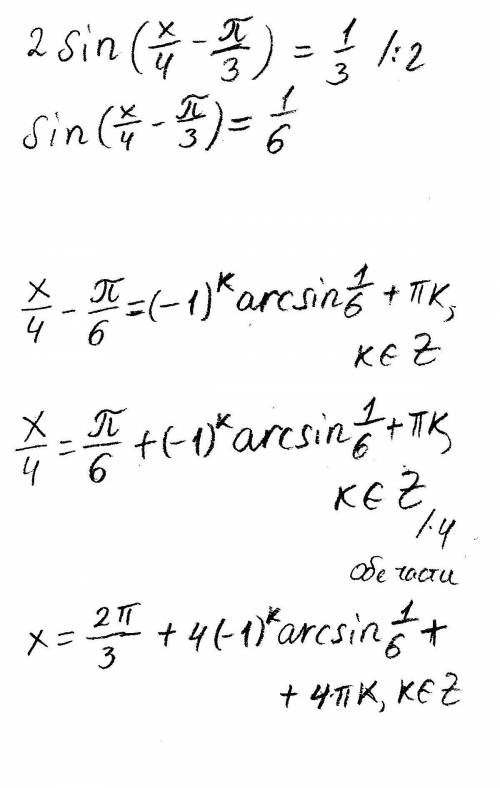 2 sin(x/4 - π/3) = 1/3 /:2
sin(x/4 - π/3) = 1/6
x/4 - π/6 = (-1)^к arcsin 1/6 + πк,
к ∈ Z
x/4 = π/6 + (-1)^к arcsin 1/6 + πк,
к ∈ Z
/·4
обе части
x = 2π/3 + 4(-1)^к arcsin 1/6 +
+ 4πк, к ∈ Z